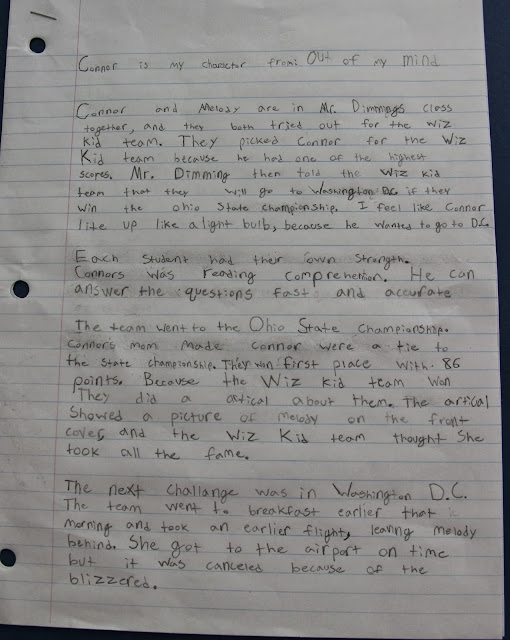 Connor is my character from: Out of my mind
Connor and Melody are in Mr. Dimmings class
together, and they both tried out for the wiz
kid team. They picked Connor for the Wiz
Kid team because he had one of the highest
scores. Mr. Dimming then told the Wiz kid
team that they will go to Washington D.C. if they
win the ohio State Championship. I feel like Connor
lite up like a light bulb, because he wanted to go to D.C.
Each student had their own strength.
Connors was reading comprehention. He can
answer the questions fast and accurate
The team went to the Ohio State Championship.
Connor's mom made connor were a tie to
the state championship. They won first place with 86
points. Because the Wiz kid team won
They did a artical about them. The artical
Showed a picture of melody on the front
cover, and the Wiz Kid team thought She
took all the fame.
The next challange was in Washington D.C.
The team went to breakfast earlier that
morning and took an earlier flight, leaving melody
behind. She got to the airport on time
but it was canceled because of the
blizzered.